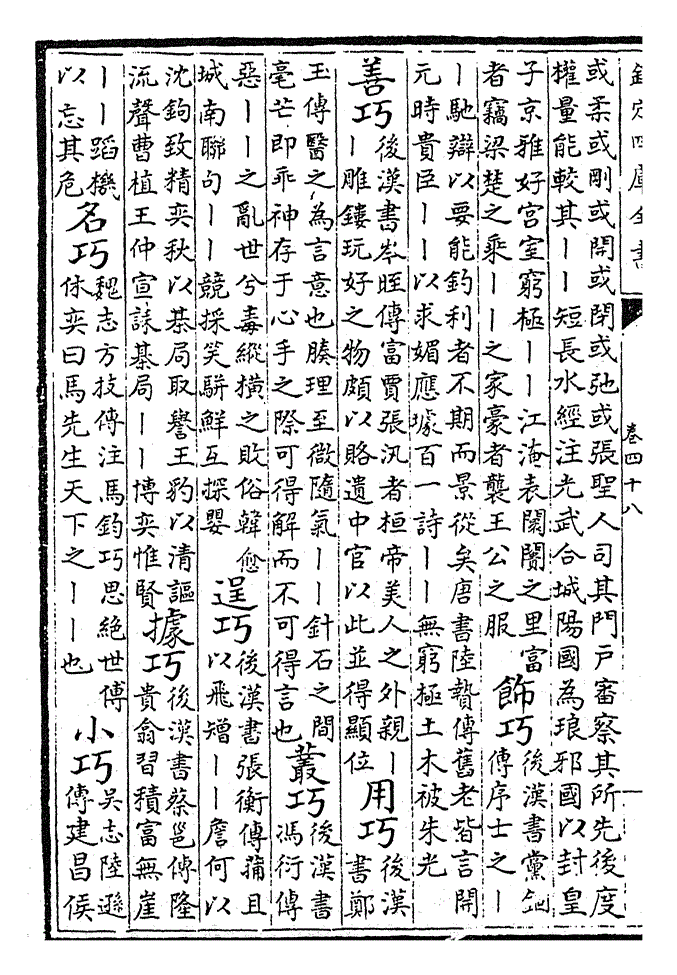 欽定四庫全書
卷四十八
或柔或剛或開或閉或弛或張聖人司其門戶審察其所先後度
權量能較其丨丨短長水經注光武合城陽國為琅邪國以封皇
子京雅好宫室窮極丨丨江淹表闤闠之里富
者竊梁楚之乘丨丨之家豪者襲王公之服
飾巧
後漢書黨錮
傳序士之丨
丨馳辯以要能釣利者不期而景從矣唐書陸贄傳舊老皆言開
元時貴臣丨丨以求媚應璩百一詩丨丨無窮極土木被朱光
善巧
後漢書岑晊傳富賈張汎者桓帝美人之外親丨
丨雕鏤玩好之物頗以賂遺中官以此並得顯位
用巧
後漢
書鄭
玉傳醫之為言意也腠理至微隨氣丨丨針石之間
毫芒即乖神存于心手之際可得解而不可得言也
叢巧
後漢書
馮衍傳
惡丨丨之亂世兮毒縱橫之敗俗韓愈
城南聯句丨丨競採笑駢鮮互探嬰
逞巧
後漢書張衡傳蒲且
以飛矰丨丨詹何以
沈鉤致精奕秋以棊局取譽王豹以清謳
流聲曹植王仲宣誄棊局丨丨博奕惟賢
據巧
後漢書蔡邕傳隆
貴翕習積富無崖
丨丨蹈機
以忘其危
名巧
魏志方技傳注馬鈞巧思絕世傅
休奕曰馬先生天下之丨丨也
小巧
吳志陸遜
傳建昌侯